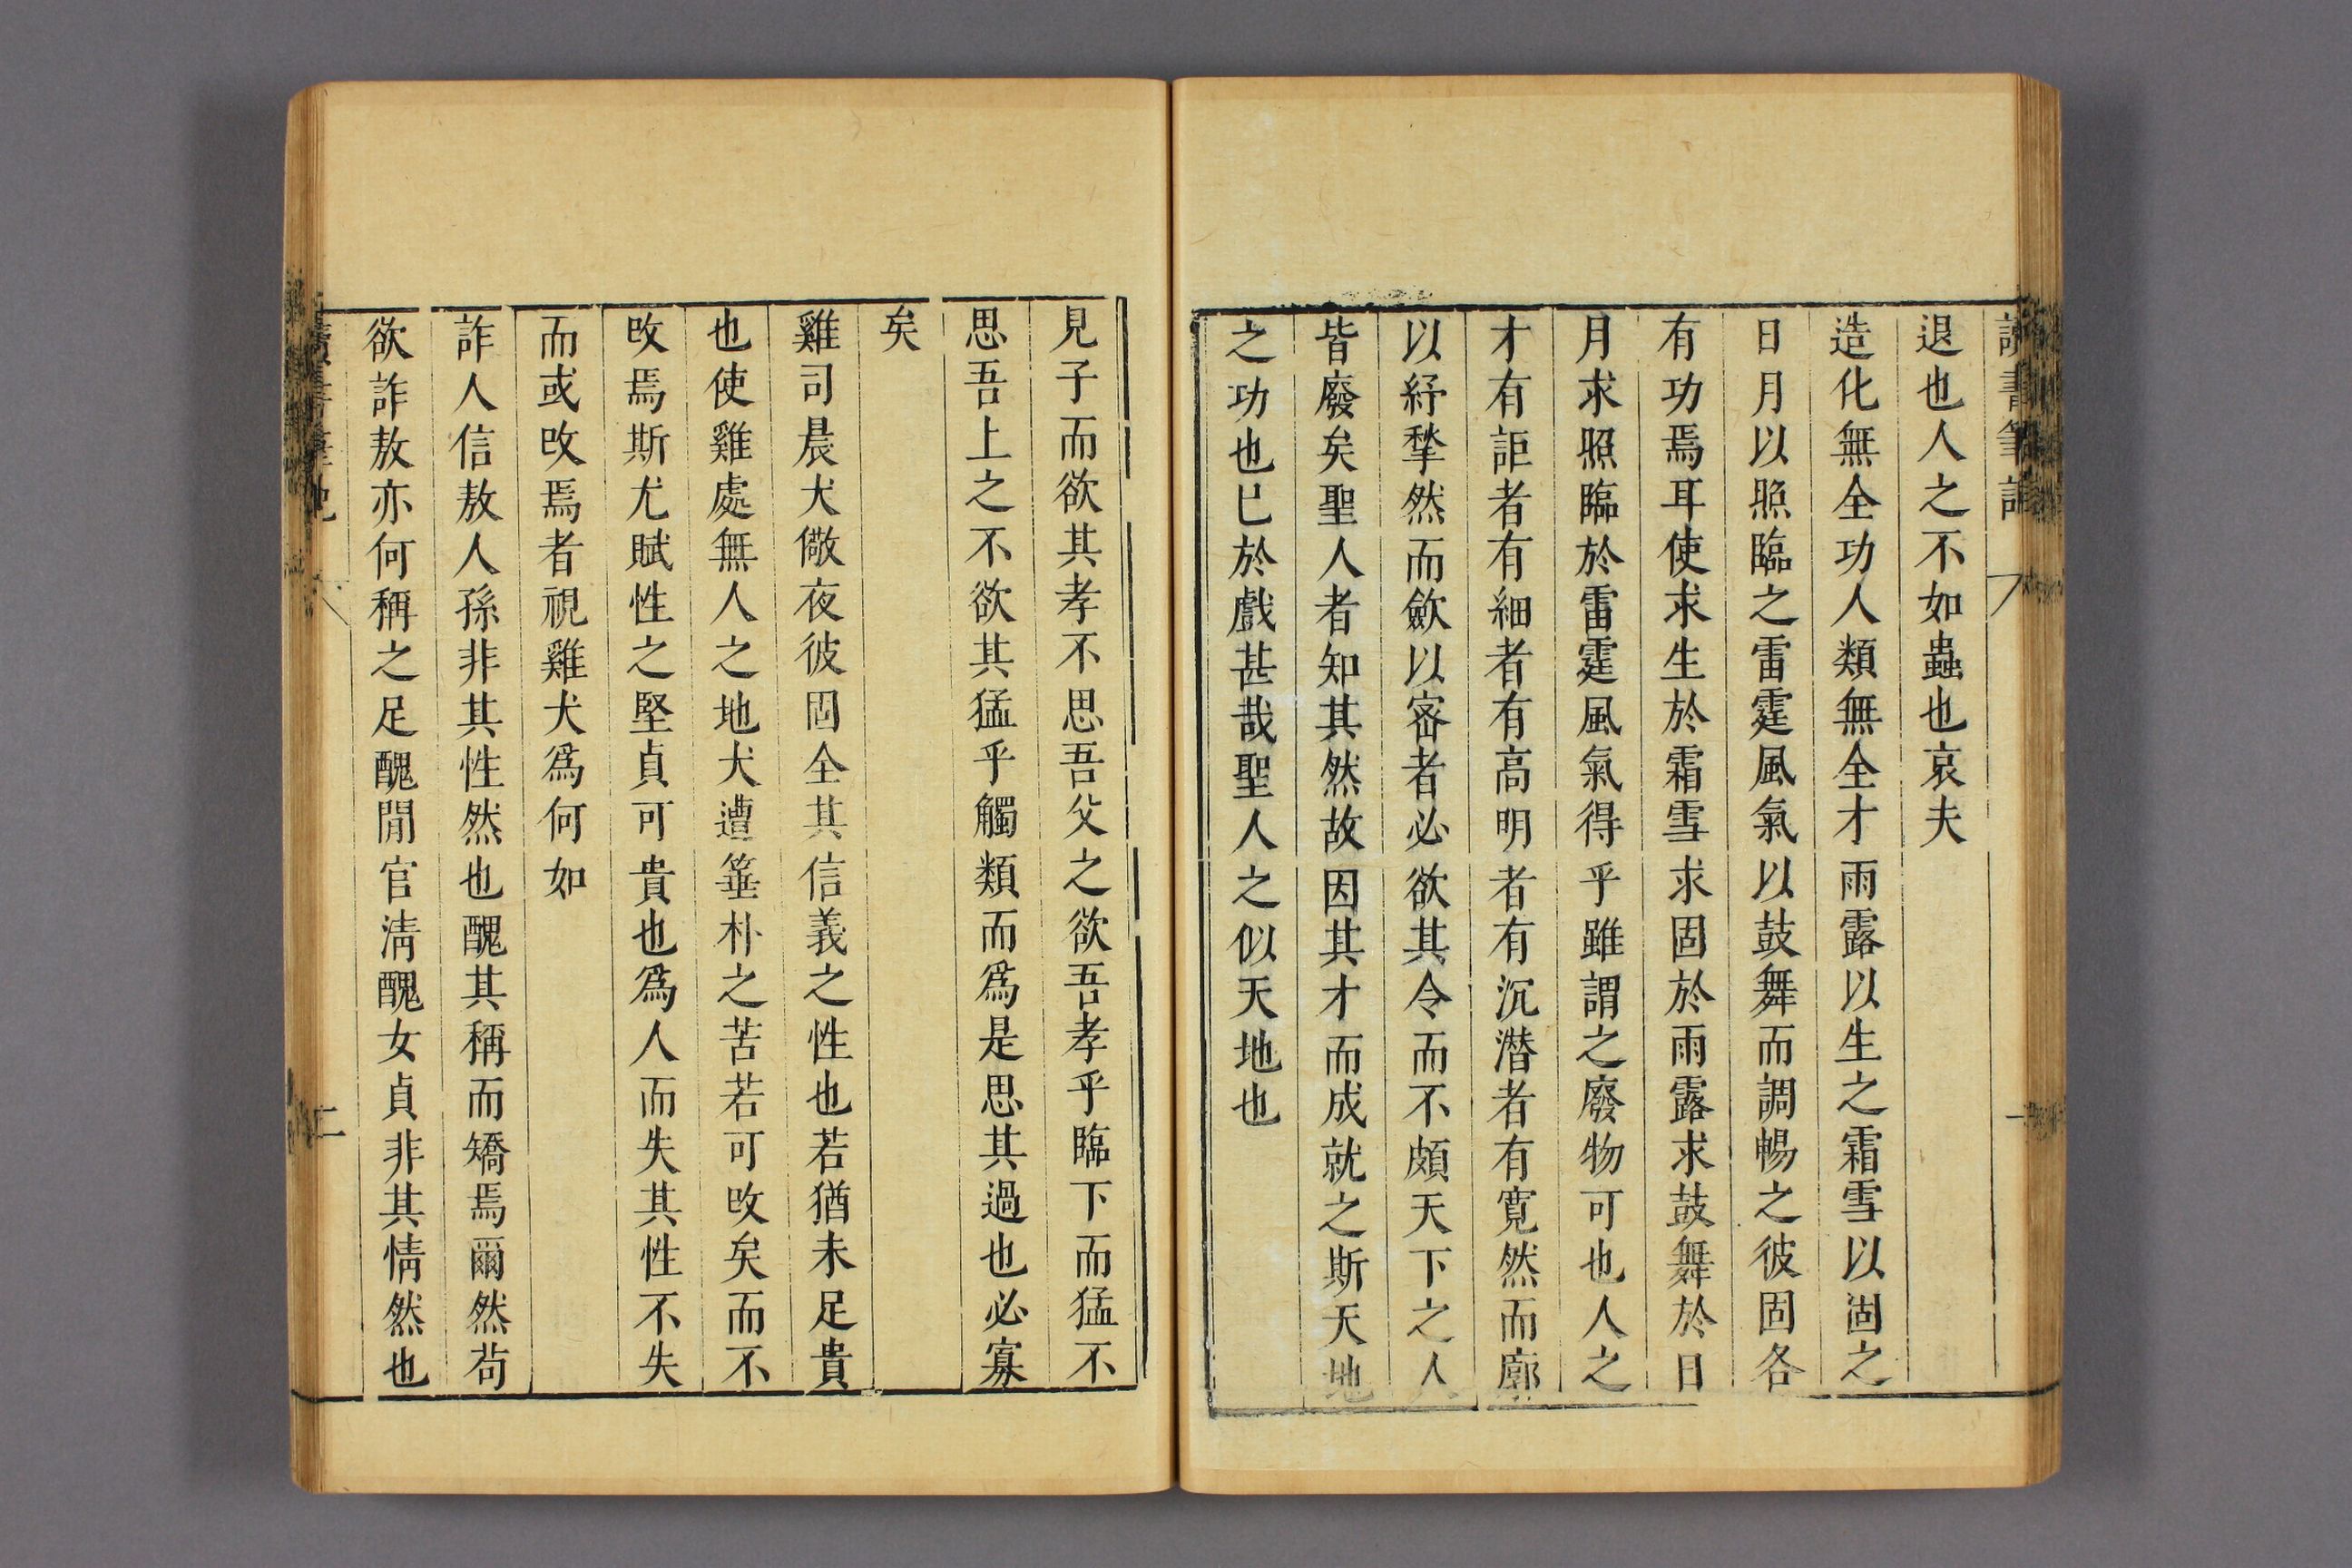 讀書筆記
一
退也人之不如蟲也哀夫
造化無全功人類無全才雨露以生之霜雪以固之
日月以照臨之雷霆風氣以鼓舞而調暢之彼固各
有功焉耳使求生於霜雪求固於雨露求鼓舞於日
月求照臨於雷霆風氣得乎雖謂之廢物可也人之
才有詎者有細者有高明者有沉潛者有寬然而廓
以紓犂然而歛以宻者必欲其令而不頗天下之人
皆廢矣聖人者知其然故因其才而成就之斯天地
之功也已於戲甚哉聖人之似天地也
見子而欲其孝不思吾父之欲吾孝乎臨下而猛不
思吾上之不欲其猛乎觸類而爲是思其過也必寡
矣
雞司晨犬儆夜彼固全其信義之性也若猶未足貴
也使雞處無人之地犬遭箠朴之苦若可改矣而不
改焉斯尤賦性之堅貞可貴也爲人而失其性不失
而或改焉者視雞犬爲何如
詐人信敖人孫非其性然也醜其稱而矯焉爾然茍
欲詐敖亦何稱之足醜閒官清醜女貞非其情然也
讀書筆記
二